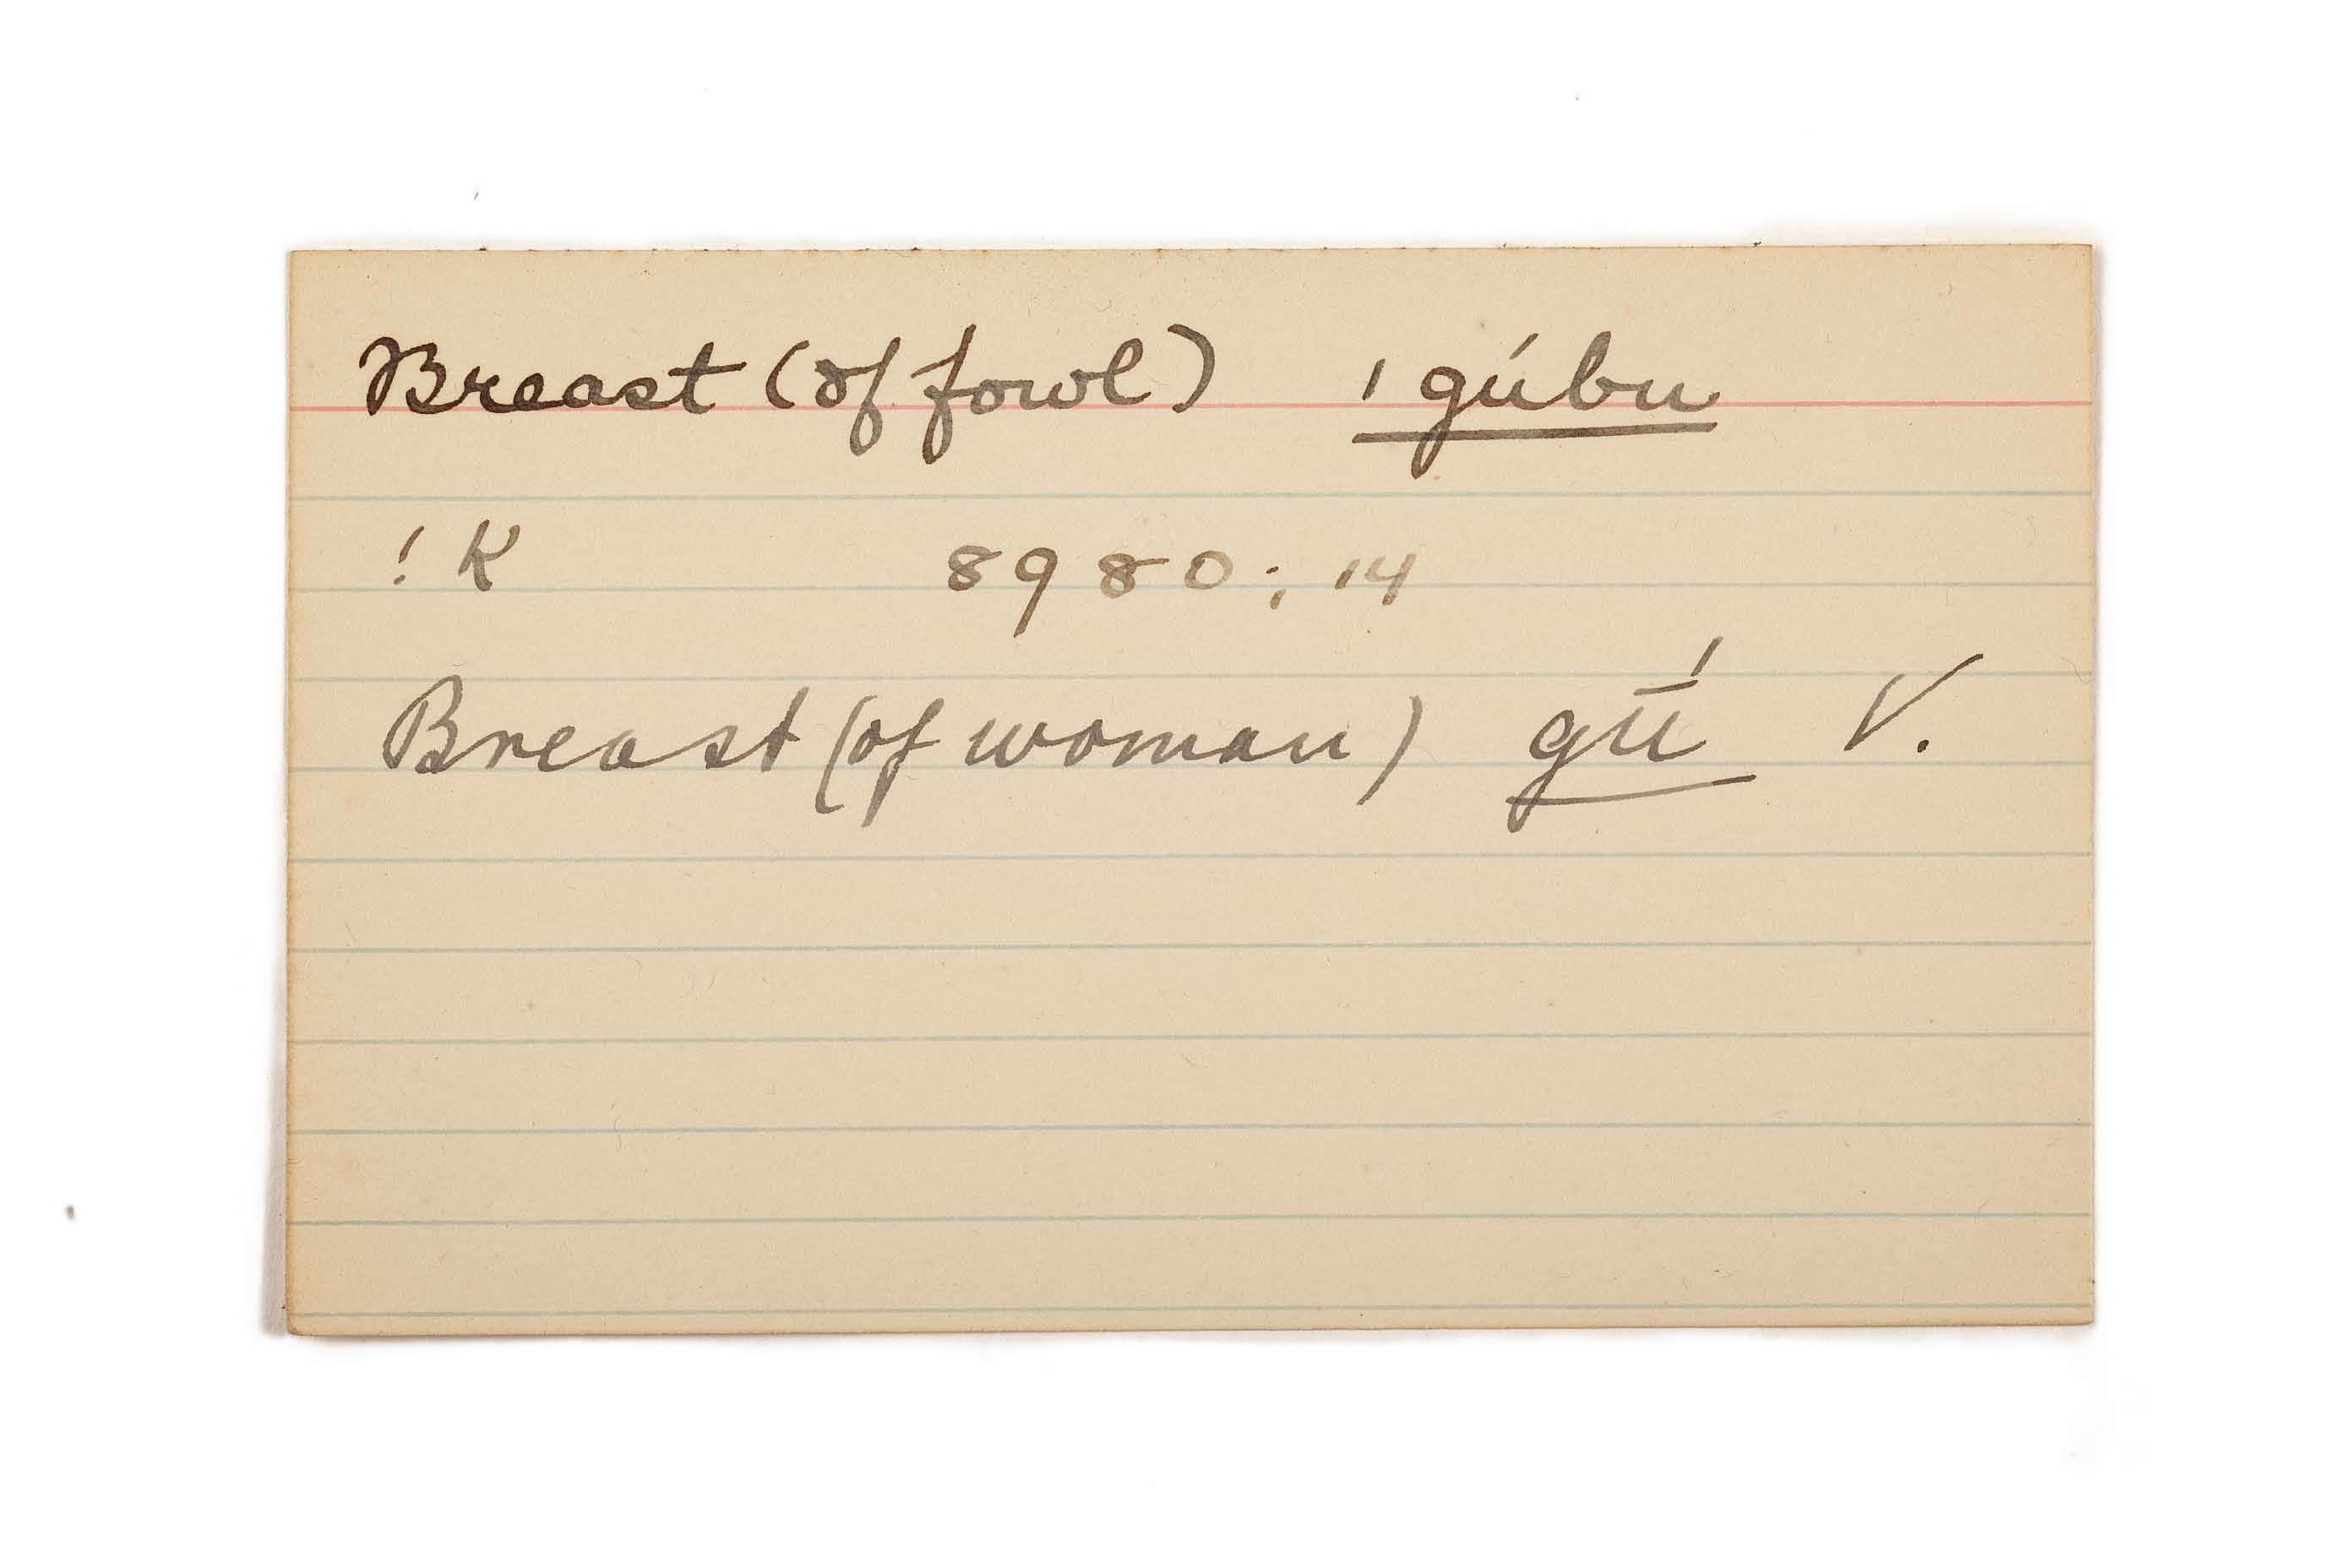 Breast (of fowl) ǀ gúbu
! K 8980; 14
Breast (of woman) gū́ V.